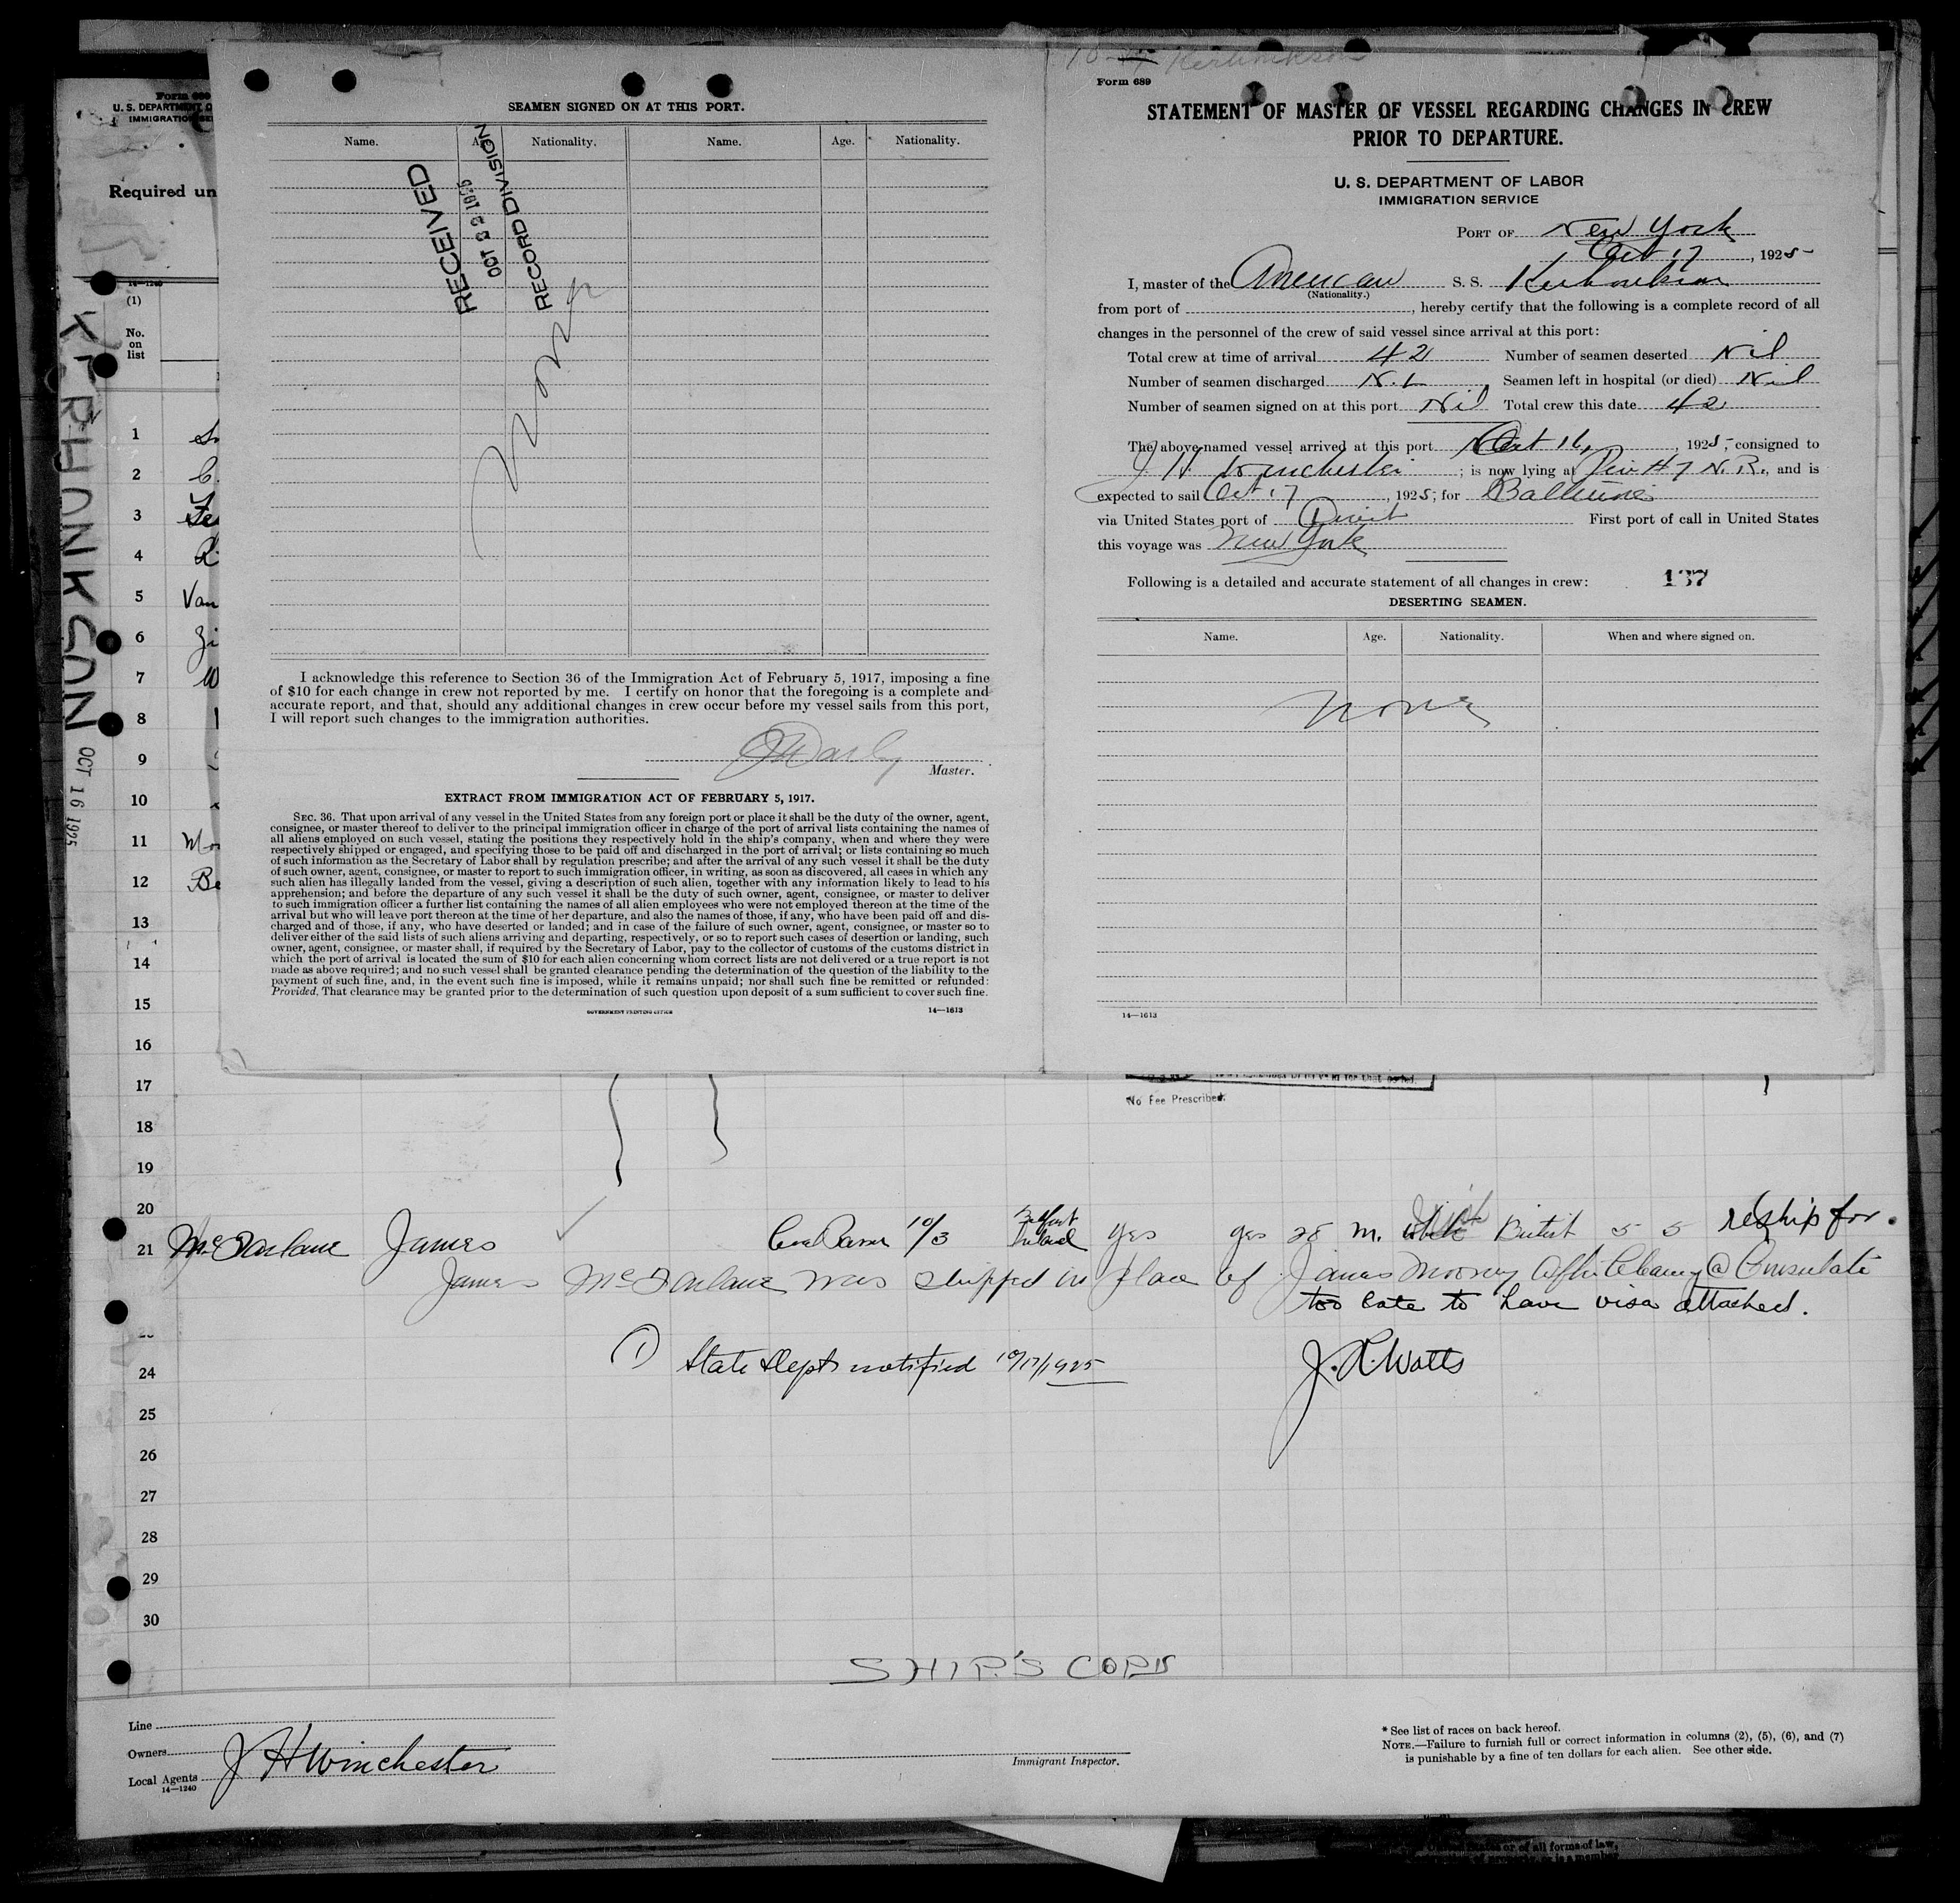 Form 689
U. S. DEPARTMENT O
IMMIGRATION SE
Required un
14—1240
(1)
No.
on
list
KERHONKSON
OCT 16 1925
1
2
3
4
5 Van
6 Zi
7 W
8
9
10
11
12 Be
13
14
15
16
SEAMEN SIGNED ON AT THIS PORT.
Name. Age. Nationality. Name. Age. Nationality.
RECEIVED
OCT 22 1925
RECORD DIVISION
None
I acknowledge this reference to Section 36 of the Immigration Act of February 5, 1917, imposing a fine
of $10 for each change in crew not reported by me. I certify on honor that the foregoing is a complete and
accurate report, and that, should any additional changes in crew occur before my vessel sails from this port,
I will report such changes to the immigration authorities.
Master.
EXTRACT FROM IMMIGRATION ACT OF FEBRUARY 5, 1917.
SEC. 36. That upon arrival of any vessel in the United States from any foreign port or place it shall be the duty of the owner, agent,
consignee, or master thereof to deliver to the principal immigration officer in charge of the port of arrival lists containing the names of
all aliens employed on such vessel, stating the positions they respectively hold in the ship's company, when and where they were
respectively shipped or engaged, and specifying those to be paid off and discharged in the port of arrival; or lists containing so much
of such information as the Secretary of Labor shall by regulation prescribe; and after the arrival of any such vessel it shall be the duty
of such owner, agent, consignee, or master to report to such immigration officer, in writing, as soon as discovered, all cases in which any
such alien has illegally landed from the vessel, giving a description of such alien, together with any information likely to lead to his
apprehension; and before the departure of any such vessel it shall be the duty of such owner, agent, consignee, or master to deliver
to such immigration officer a further list containing the names of all alien employees who were not employed thereon at the time of the
arrival but who will leave port thereon at the time of her departure, and also the names of those, if any, who have been paid off and dis-
charged and of those, if any, who have deserted or landed; and in case of the failure of such owner, agent, consignee, or master so to
deliver either of the said lists of such aliens arriving and departing, respectively, or so to report such cases of desertion or landing, such
owner, agent, consignee, or master shall, if required by the Secretary of Labor, pay to the collector of customs of the customs district in
which the port of arrival is located the sum of $10 for each alien concerning whom correct lists are not delivered or a true report is not
made as above required; and no such vessel shall be granted clearance pending the determination of the question of the liability to the
payment of such fine, and, in the event such fine is imposed, while it remains unpaid; nor shall such fine be remitted or refunded:
Provided, That clearance may be granted prior to the determination of such question upon deposit of a sum sufficient to cover such fine.
GOVERNMENT PRINTING OFFICE 14—1613
Kerhonkson
Form 689
STATEMENT OF MASTER OF VESSEL REGARDING CHANGES IN CREW
PRIOR TO DEPARTURE.
U. S. DEPARTMENT OF LABOR
IMMIGRATION SERVICE
PORT OF New York
Oct 17, 1925
I, master of the American S. S. Kerhonkson
(Nationality.)
from port of , hereby certify that the following is a complete record of all
changes in the personnel of the crew of said vessel since arrival at this port:
Total crew at time of arrival 42 Number of seamen deserted Nil
Number of seamen discharged NiL Seamen left in hospital (or died) Nil
Number of seamen signed on at this port Nil Total crew this date 42
The above-named vessel arrived at this port Oct 16, 1925, consigned to
J H Winchester; is now lying at Pier # 7 N. R., and is
expected to sail Oct 17, 1925; for Baltimore
via United States port of Direct First port of call in United States
this voyage was New York
Following is a detailed and accurate statement of all changes in crew: 137
DESERTING SEAMEN.
Name. Age. Nationality. When and where signed on.
none
14—1613
No Fee Prescribed.
17
18
19
20
21 McFarlane James 10/3 Belfast Ireland yes yes 28 M. Irish British 5 5 reship for.
James McFarlane was shipped in place of James Mooney after Clearing @ Consulate
too late to have visa attached.
① State Dept notified 10/17/1925 J. R. Watts
24
25
26
27
28
29
30
SHIP'S COPY
Line
Owners
Local Agents J H Winchester
14—1240
Immigrant Inspector.
* See list of races on back hereof.
NOTE.—Failure to furnish full or correct information in columns (2), (5), (6), and (7)
is punishable by a fine of ten dollars for each alien. See other side.